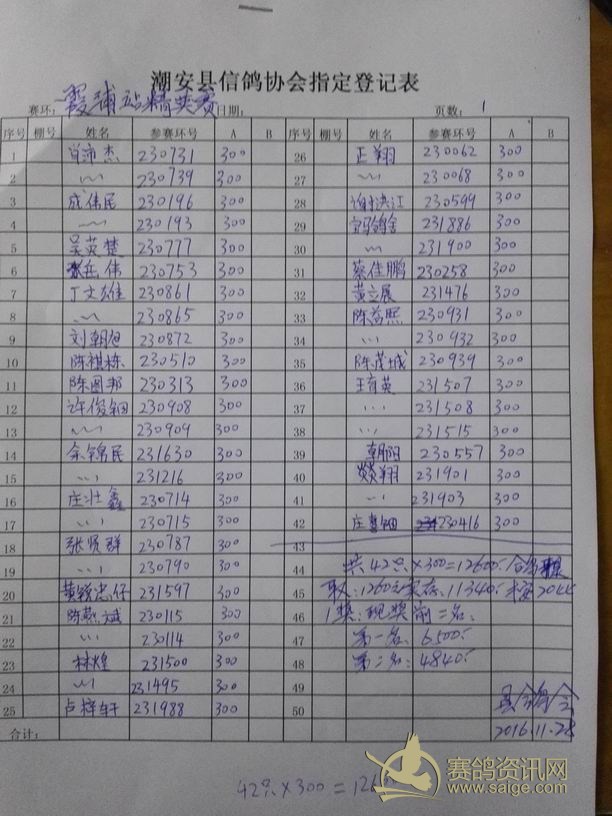 潮安县信鸽协会指定登记表
赛环: 霞浦站精英赛 日期: 页数: 1
序号 棚号 姓名 参赛环号 A B 序号 棚号 姓名 参赛环号 A B
1 肖沛杰 230731 300 26 正翔 230062 300
2 〃 230739 300 27 〃 230068 300
3 成伟民 230196 300 28 谢洪江 230599 300
4 〃 230193 300 29 231886 300
5 吴英楚 230777 300 30 〃 231900 300
6 张岳伟 230753 300 31 蔡佳鹏 230258 300
7 丁文雄 230861 300 32 黄立展 231476 300
8 〃 230865 300 33 陈益熙 230931 300
9 刘朝旭 230872 300 34 〃 230932 300
10 陈祺栋 230510 300 35 陈茂城 230939 300
11 陈图邦 230313 300 36 王育英 231507 300
12 许俊钿 230908 300 37 〃 231508 300
13 〃 230909 300 38 〃 231515 300
14 余锦民 231630 300 39 朝阳 230557 300
15 〃 231216 300 40 燚翔 231901 300
16 庄壮鑫 230714 300 41 〃 231903 300
17 〃 230715 300 42 庄 钿 230416 300
18 张贤群 230787 300 43
19 〃 230790 300 44 共42只×300=12600
20 黄锐忠仔 231597 300 45 1260元 11340
21 陈勃斌 230115 300 46 1奖:现奖前二名
22 〃 230114 300 47 第一名:6500
23 林煌 231500 300 48 第二名:4840
24 〃 231495 300 49
25 卢梓轩 231988 300 50
合计: 2016.11.28
42只×300=126
赛鸽资讯网
www.saige.com